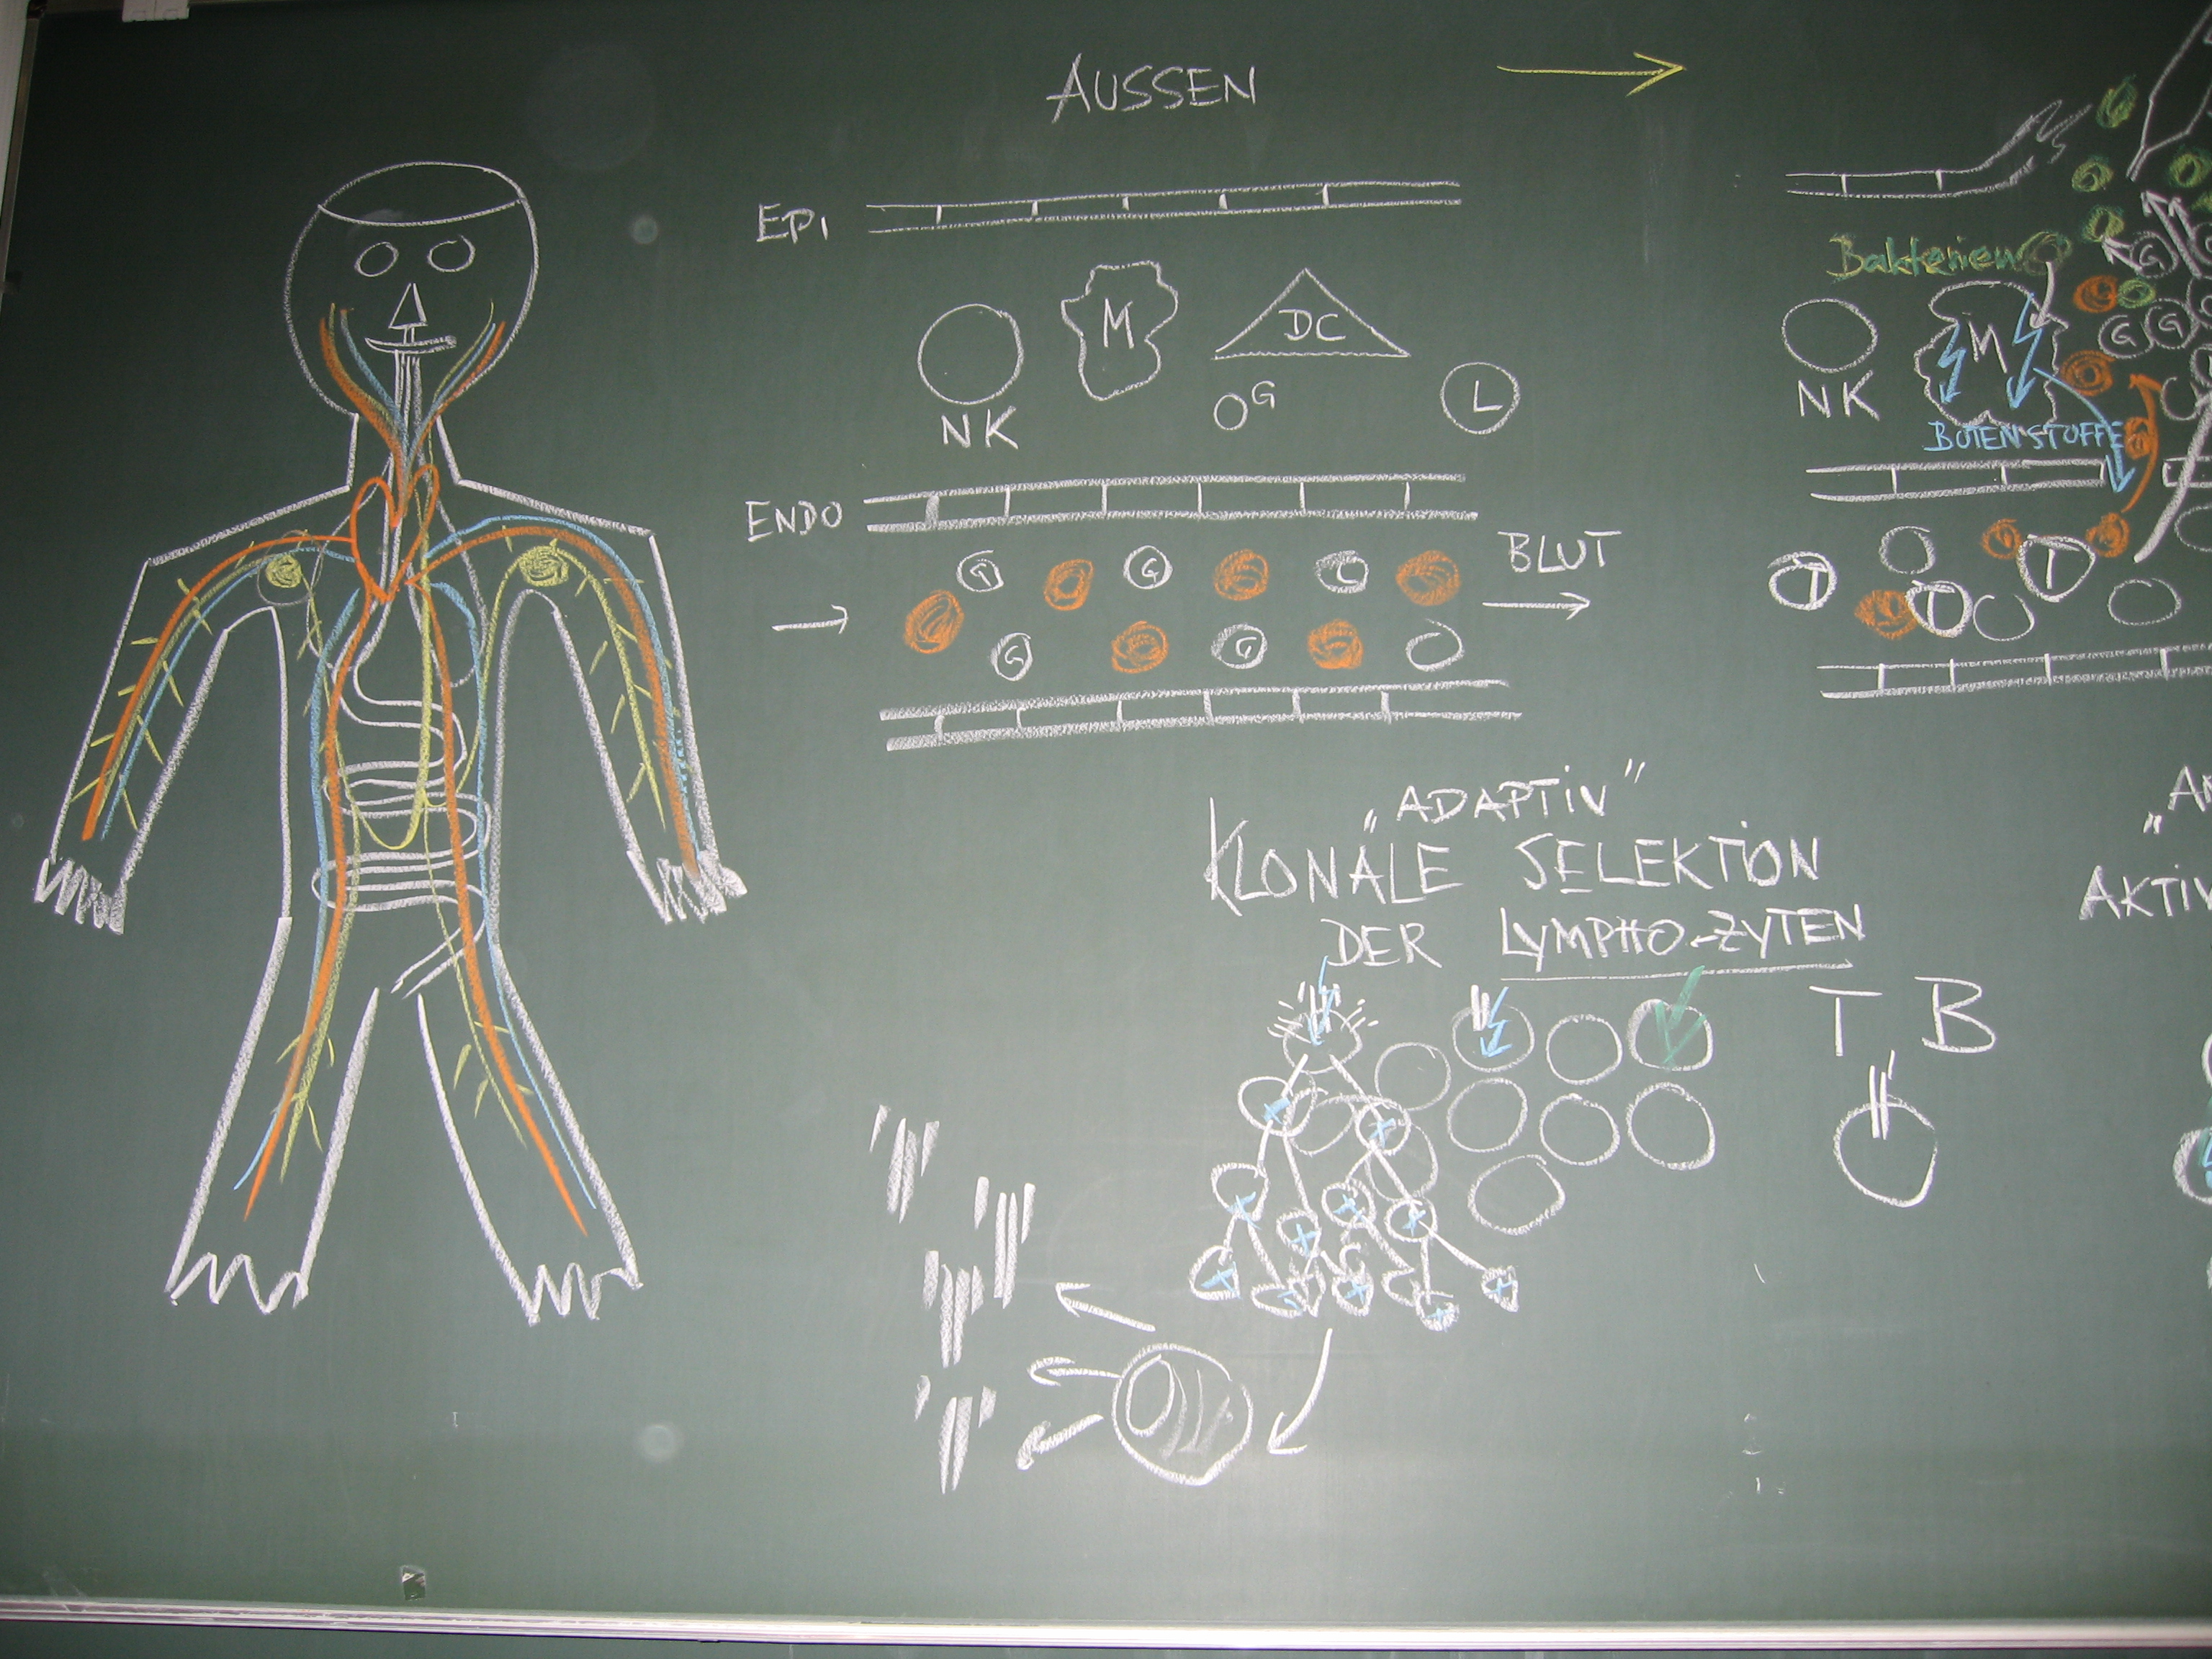 AUSSEN
EPI
M
DC
NK
G
L
ENDO
BLUT
G
G
G
G
G
Bakterien
G
M
G
G
NK
BOTENSTOFFE
T
T
T
„ADAPTIV"
KLONALE SELEKTION
DER LYMPHO-ZYTEN
T B
AKTIV